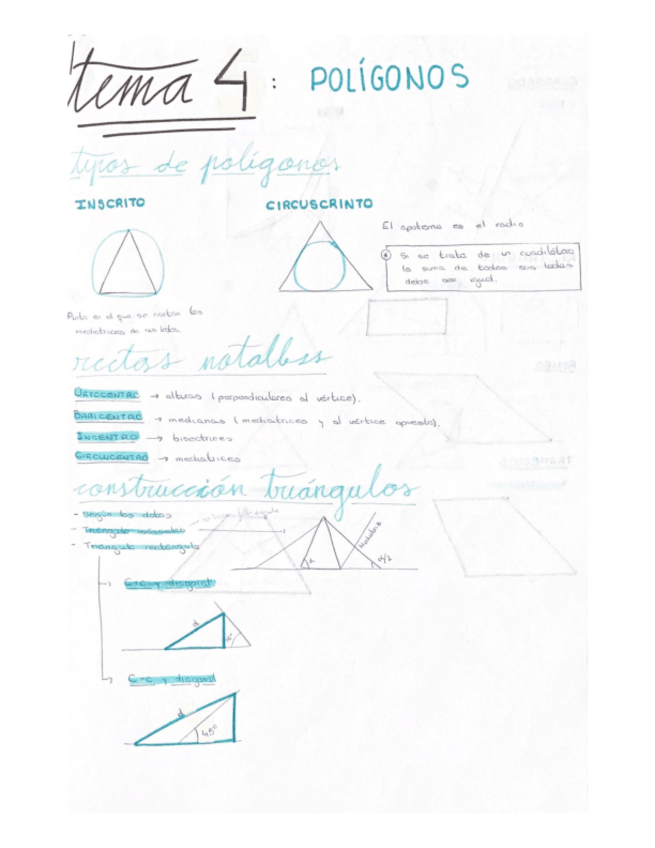 tema 4: POLÍGONOS
tipos de polígonos
INSCRITO
CIRCUSCRINTO
El apotema es el radio
Si se trata de un cuadilátero
la suma de todos sus lados
debe ser igual.
Punto en el que se cortan las
mediatrices de sus lados.
rectas notalbss
ORTOCENTRO → alturas (perpendiculares al vértice).
BARICENTRO → medianas (mediatrices y al vértice opuesto).
INCENTRO → bisectrices
CIRCUCENTRO → mediatrices
construcción triángulos
- Según los datos
- Triángulo isósceles
- Triángulo rectángulo
α
Mediatriz
α/2
C+C y diagonal
d
C-C y diagonal
d
45°